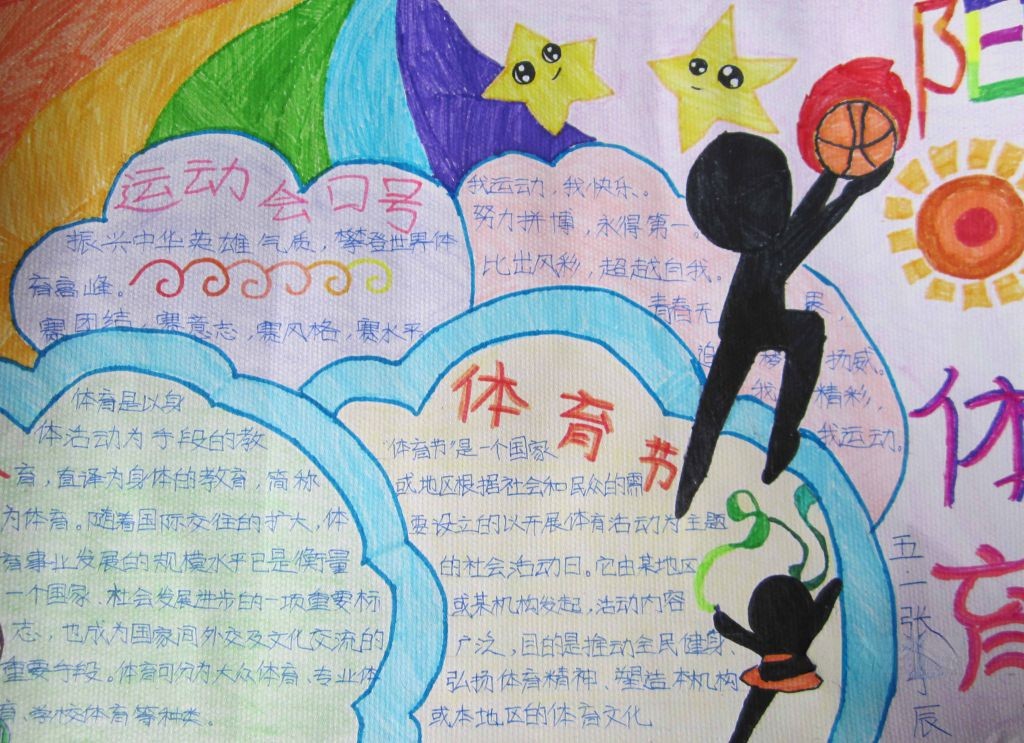 运动会口号
振兴中华英雄气质，攀登世界体
育高峰。
赛团结，赛意志，赛风格，赛水平
我运动，我快乐。
努力拼博，永得第一。
比出风彩，超越自我。
青春无
畏，
扬威。
我
精彩，
我运动。
体育是以身
体活动为手段的教
育，直译为身体的教育，简称
为体育。随着国际交往的扩大，体
育事业发展的规模水平已是衡量
一个国家、社会发展进步的一项重要标
志，也成为国家间外交及文化交流的
重要手段。体育可分为大众体育、专业体
育、学校体育等种类。
体育节
“体育节”是一个国家
或地区根据社会和民众的需
要设立的以开展体育活动为主题
的社会活动日。它由某地区
或某机构发起，活动内容
广泛，目的是推动全民健身、
弘扬体育精神、塑造本机构
或本地区的体育文化
阳
体
育
五一张
辰